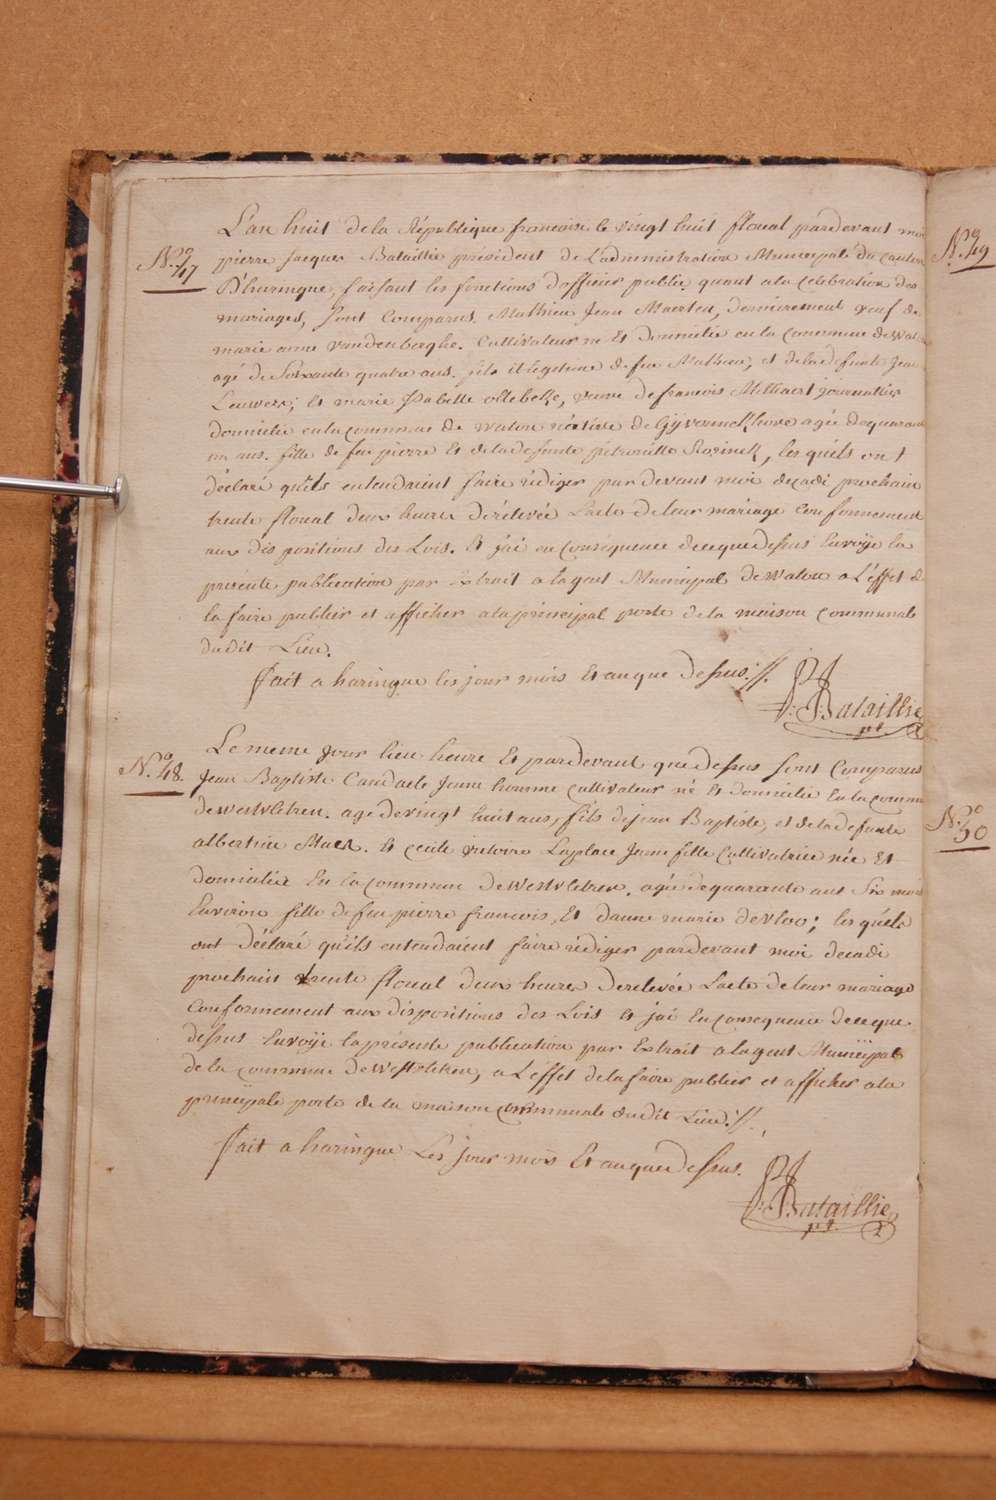 L'an huit de la République francoise le vingt huit floreal pardevant moi
N.º 47
pierre Jacques Bataillie président de L'administration Municipale du canton
D'haringue, faisant les fonctions d'officier public quant a la celebration des
mariages, sont Comparus Mathieu Jean Maerten, dernierement veuf de
marie anne vandenberghe. Cultivateur né et domicilié en la commune de Watou
agé de Soixante quatre ans. fils illégitime de feu Mathieu; et de la defunte Jeane
Leuwers; et marie Isabelle ollebeke, veuve de francois Milbaert journaillier
domiciliée en la commune de watou native de Gyverinckhove agée de quarante
un ans. fille de feu pierre et de la defunte pétronille Rosinck, lesquéls ont
déclaré qu'ils entendaient faire rédiger pardevant moi decadi prochain
trente floreal deux heures de rélevée L'acte de leur mariage conformement
aux dispositions des Lois. Et j'ai en conséquence de ce que dessus Envoÿé la
présente publication par Extrait a l'agent Municipal de watou a L'effet de
la faire publier et afficher a la principal porte de la maison communale
du dit Lieu.
fait a haringue les jour mois Et an que dessus.//.
P: J: Bataillie
pt.
N.º 48.
Le meme jour lieu heure Et pardevant que dessus sont Comparus
Jean Baptiste Candaele Jeune homme Cultivateur né et domicilié En la commune
de westvleteren. agé de vingt huit ans, fils de jean Baptiste, et de la defunte
albertine Maes. Et cecile victoire Laplace Jeune fille Cultivatrice née Et
domiciliée En la commune de westvleteren, agée de quarante ans Six mois
Environ fille de feu pierre francois, Et d'anne marie devloo; lesquéls
ont déclaré qu'ils entendaient faire rédiger pardevant moi decadi
prochain trente floreal deux heures de relevée L'acte de leur mariage
Conformement aux dispositions des Lois et j'ai En consequence de ce que
dessus Envoÿé la présente publication par Extrait a l'agent Municipal
de la commune de Westvleteren, a L'effet de la faire publier et afficher a la
principale porte de la maison communale du dit Lieu.//.
fait a haringue Les jour mois Et an que dessus.
P: J: Bataillie
pt.
N.º 49
N.º 50